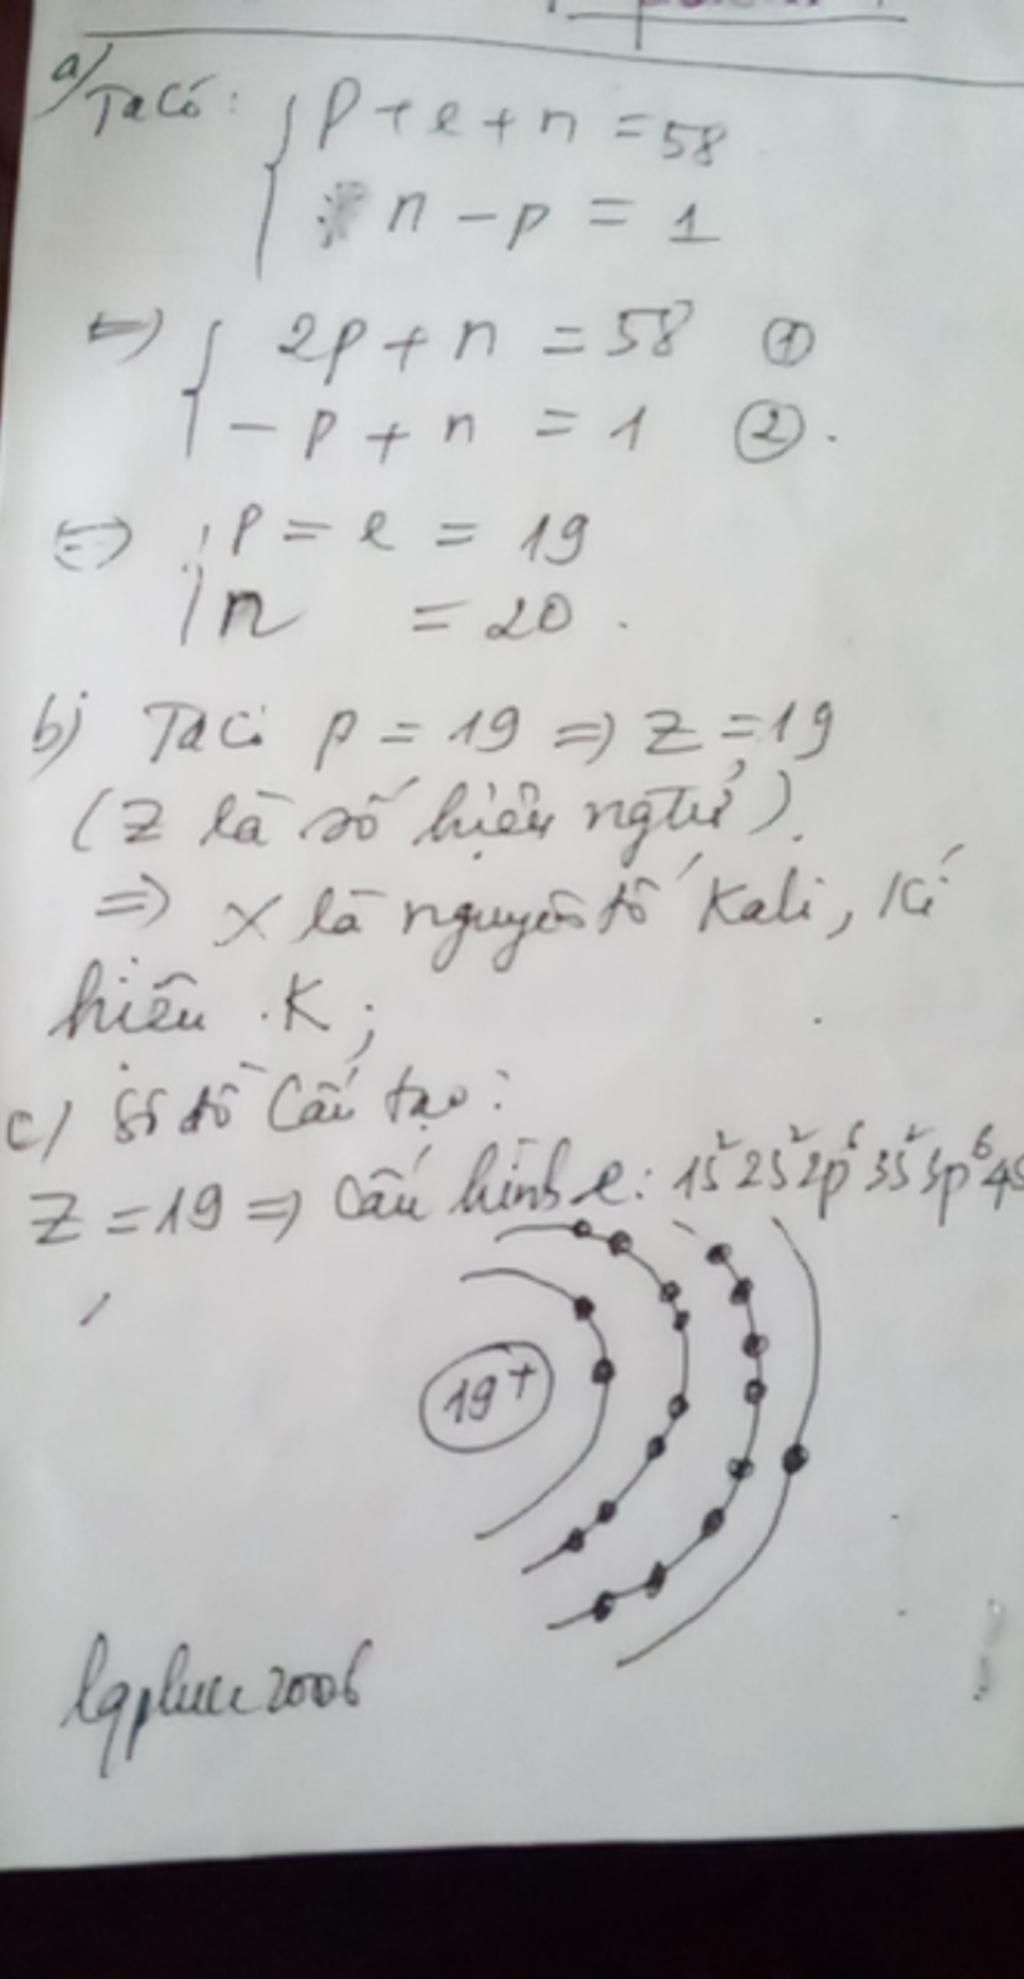 a/ Ta có: { p + e + n = 58
n - p = 1
<=> { 2p + n = 58 ①
- p + n = 1 ② .
<=> { p = e = 19
n = 20 .
b) Ta có p = 19 => Z = 19
(Z là số hiệu ngtử).
=> X là nguyên tố Kali, kí
hiệu K;
c) Sơ đồ cấu tạo:
Z = 19 => cấu hình e: 1s²2s²2p⁶3s²3p⁶4s
19+
lqphuc2006